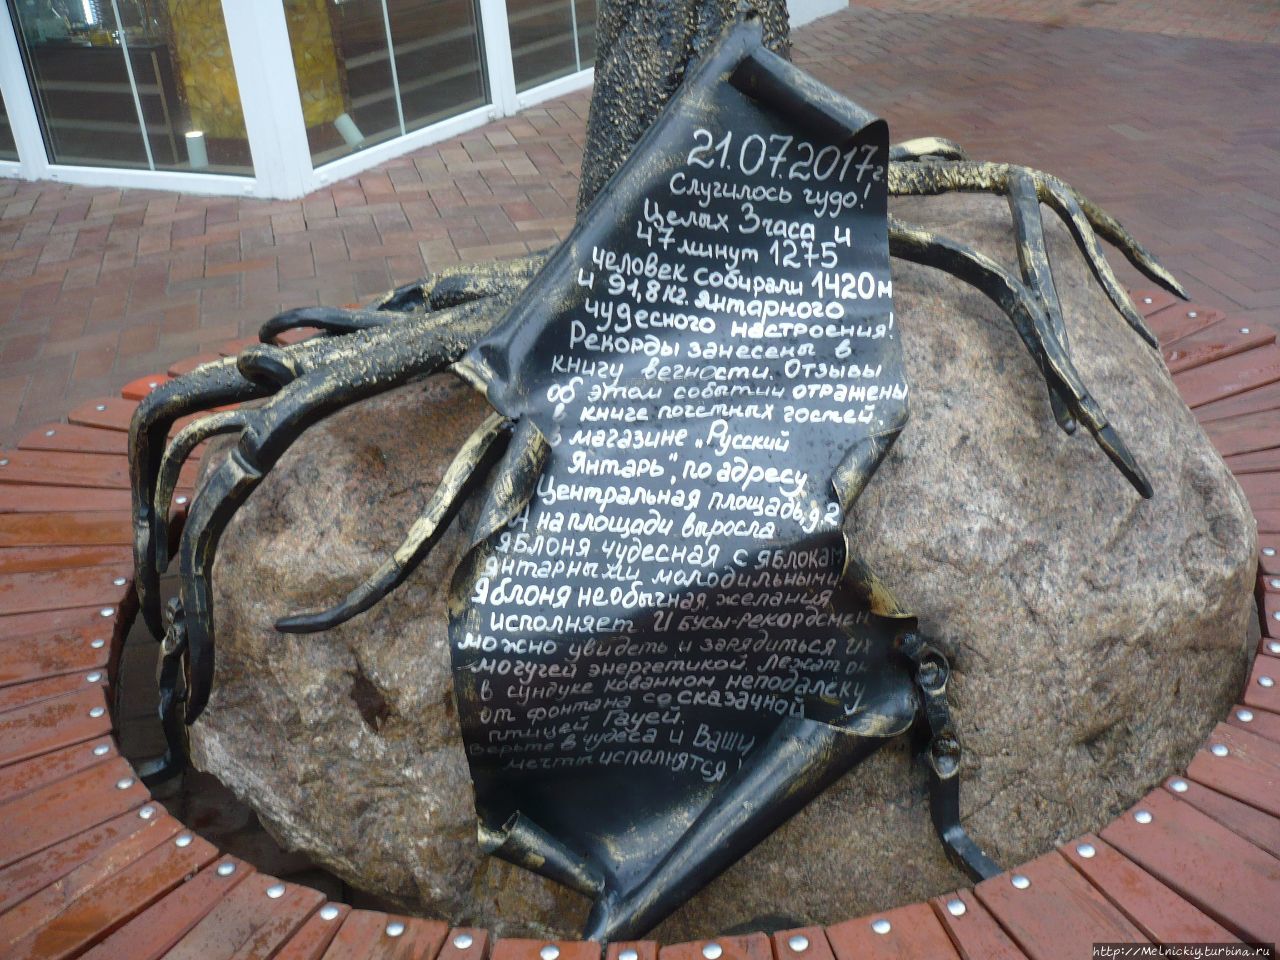 21.07.2017г
Случилось чудо!
Целых 3 часа и
47 минут 1275
человек собирали 1420м
и 91,8 кг. янтарного
чудесного настроения!
Рекорды занесены в
книгу вечности. Отзывы
об этом событии отражены
в книге почетных гостей.
в магазине „Русский
Янтарь", по адресу
Центральная площадь, д.2
А на площади выросла
яблоня чудесная с яблокам
янтарными молодильными
Яблоня необычная, желания
исполняет И бусы-рекордсмен
можно увидеть и зарядиться их
могучей энергетикой, лежат он
в сундуке кованном неподалёку
от фонтана со сказачной
птицей Гауей.
Верьте в чудеса и Ваши
мечты исполнятся!
http://Melnickiy.turbina.ru